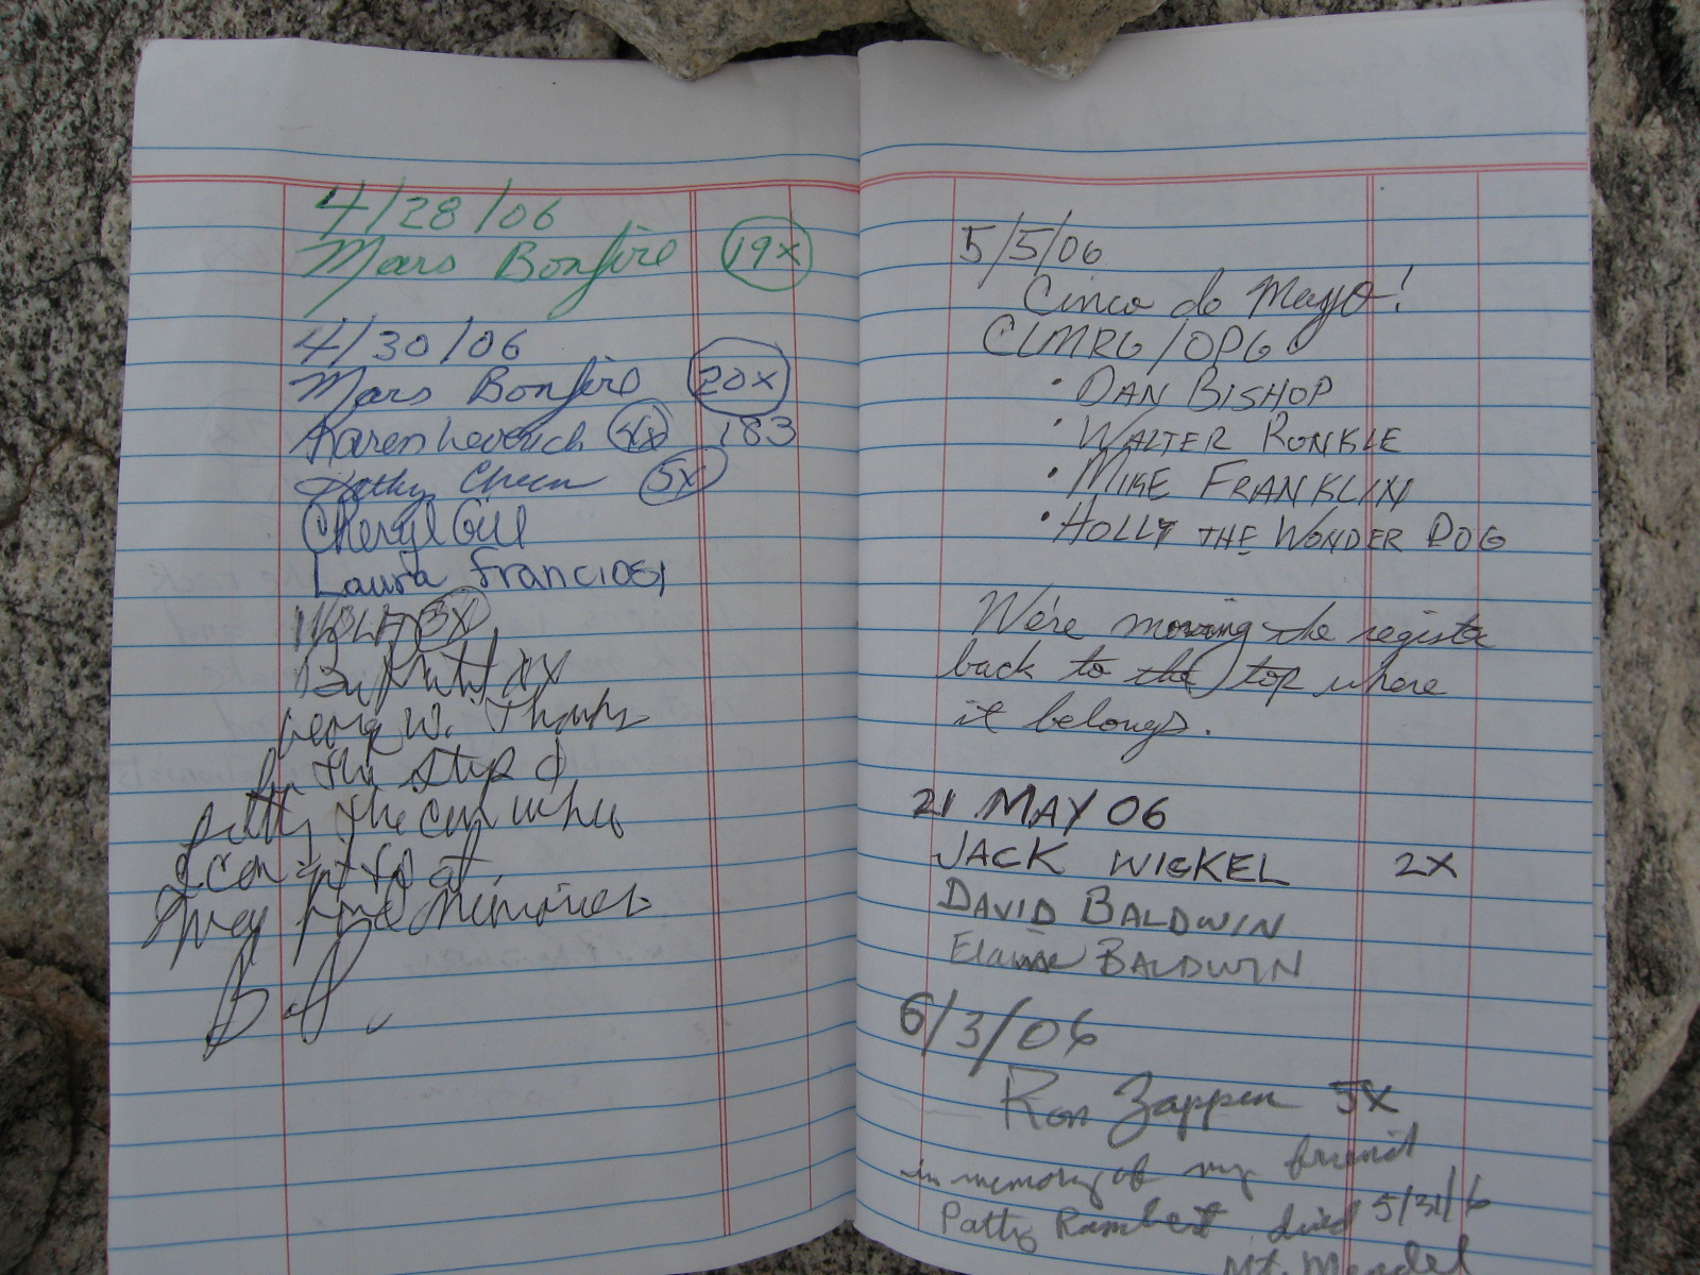 4/28/06
Mars Bonfire 19x
4/30/06
Mars Bonfire 20x
Karen Leverich 183
Cheem 5x
Cheryl Gill
Laura Franciosi
3x
George W. Thanks
for the step &
I can
fine memories
5/5/06
Cinco de Mayo!
CLMRG/OPG
• DAN BISHOP
• WALTER RONKLE
• MIKE FRANKLIN
• HOLLY THE WONDER DOG
We're moving the register
back to the top where
it belongs.
21 MAY 06
JACK WICKEL 2X
DAVID BALDWIN
Elaine BALDWIN
6/3/06
Ron Zappen 5x
in memory of my friend
Patty Rambert died 5/31/6
Mt. Mendel